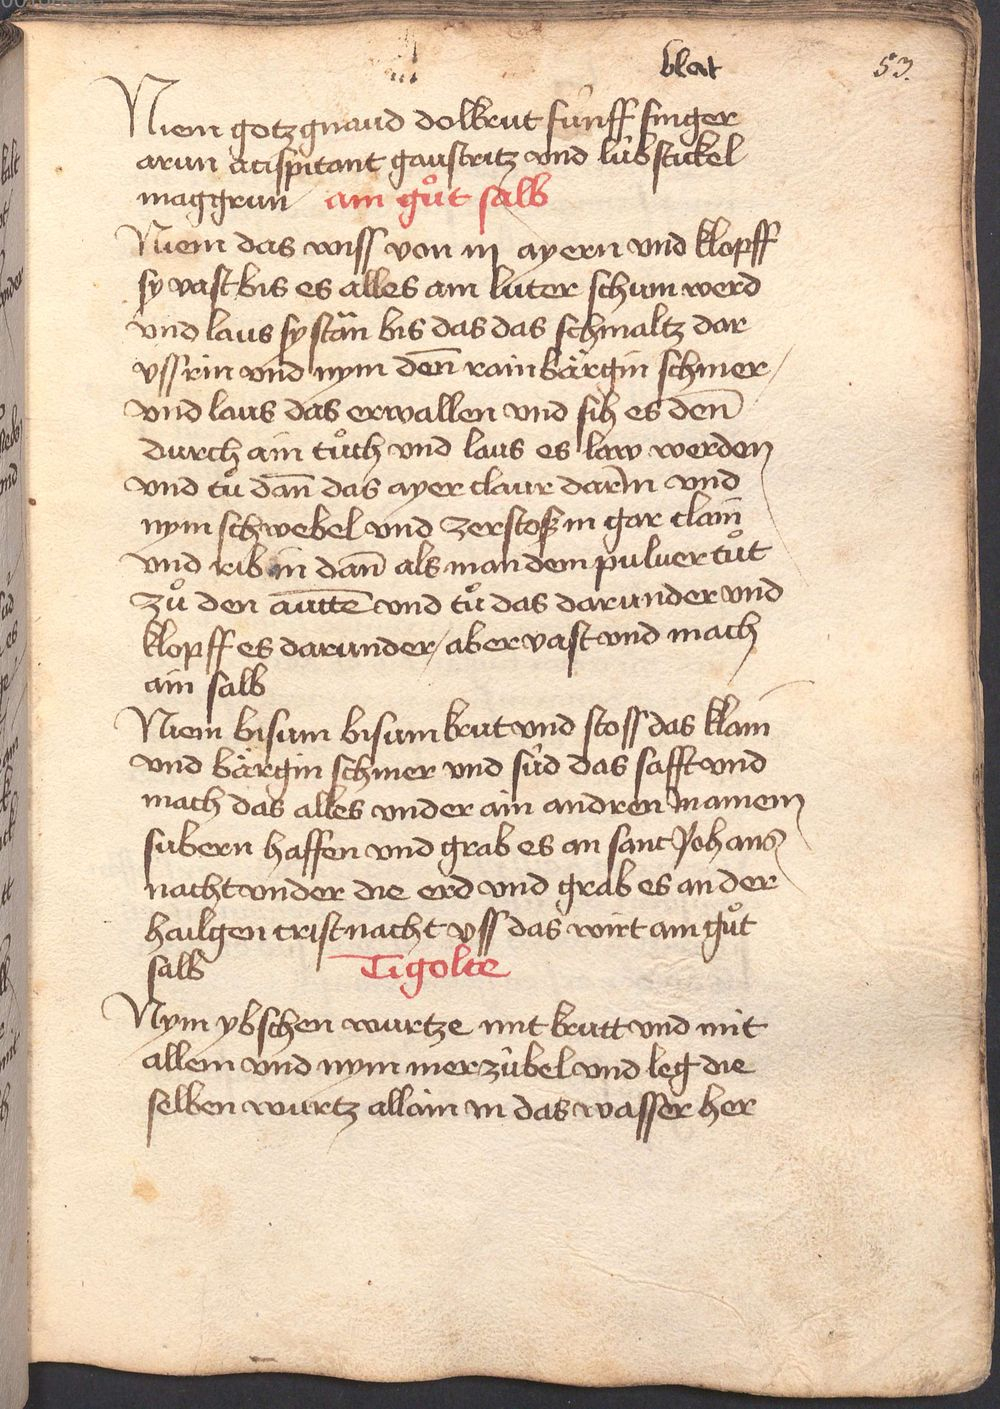 blat 53.
Niem gotzgnaud dolkrut fünff finger
arun attispitant gaustritz vnd lübstickel
maggrun ain gůt salb
Niem das wiss von iij ayern vnd klopff
sy vast bis es alles ain luter schum werd
vnd laus sy stän bis das das schmaltz dar
vss rin vnd nym den̄ rain bärgin schmer
vnd laus das erwallen vnd sih es den̄
durch ain tůch vnd laus es law werden
vnd tů dan̄ das ayer claur darīn vnd
nym schwebel vnd zerstosz in gar clain
vnd rib in dan̄ als man dem puluer tůt
zů den autte̅ vnd tů das darunder vnd
klopff es darunder aber vast vnd mach
ain salb
Niem bisum bisumkrut vnd stoss das klain
vnd bärgin schmer vnd süd das safft vnd
mach das alles vnder ain andren in ainem
subern haffen vnd grab es an sant Johans
nacht vnder die erd vnd grab es an der
hailgen cristnacht vss das wirt ain gůt
salb Tigolte
Nym ybschen wurtze mit krutt vnd mit
allem vnd nym merzübel vnd leg die
selben wurtz allain in das wasser her